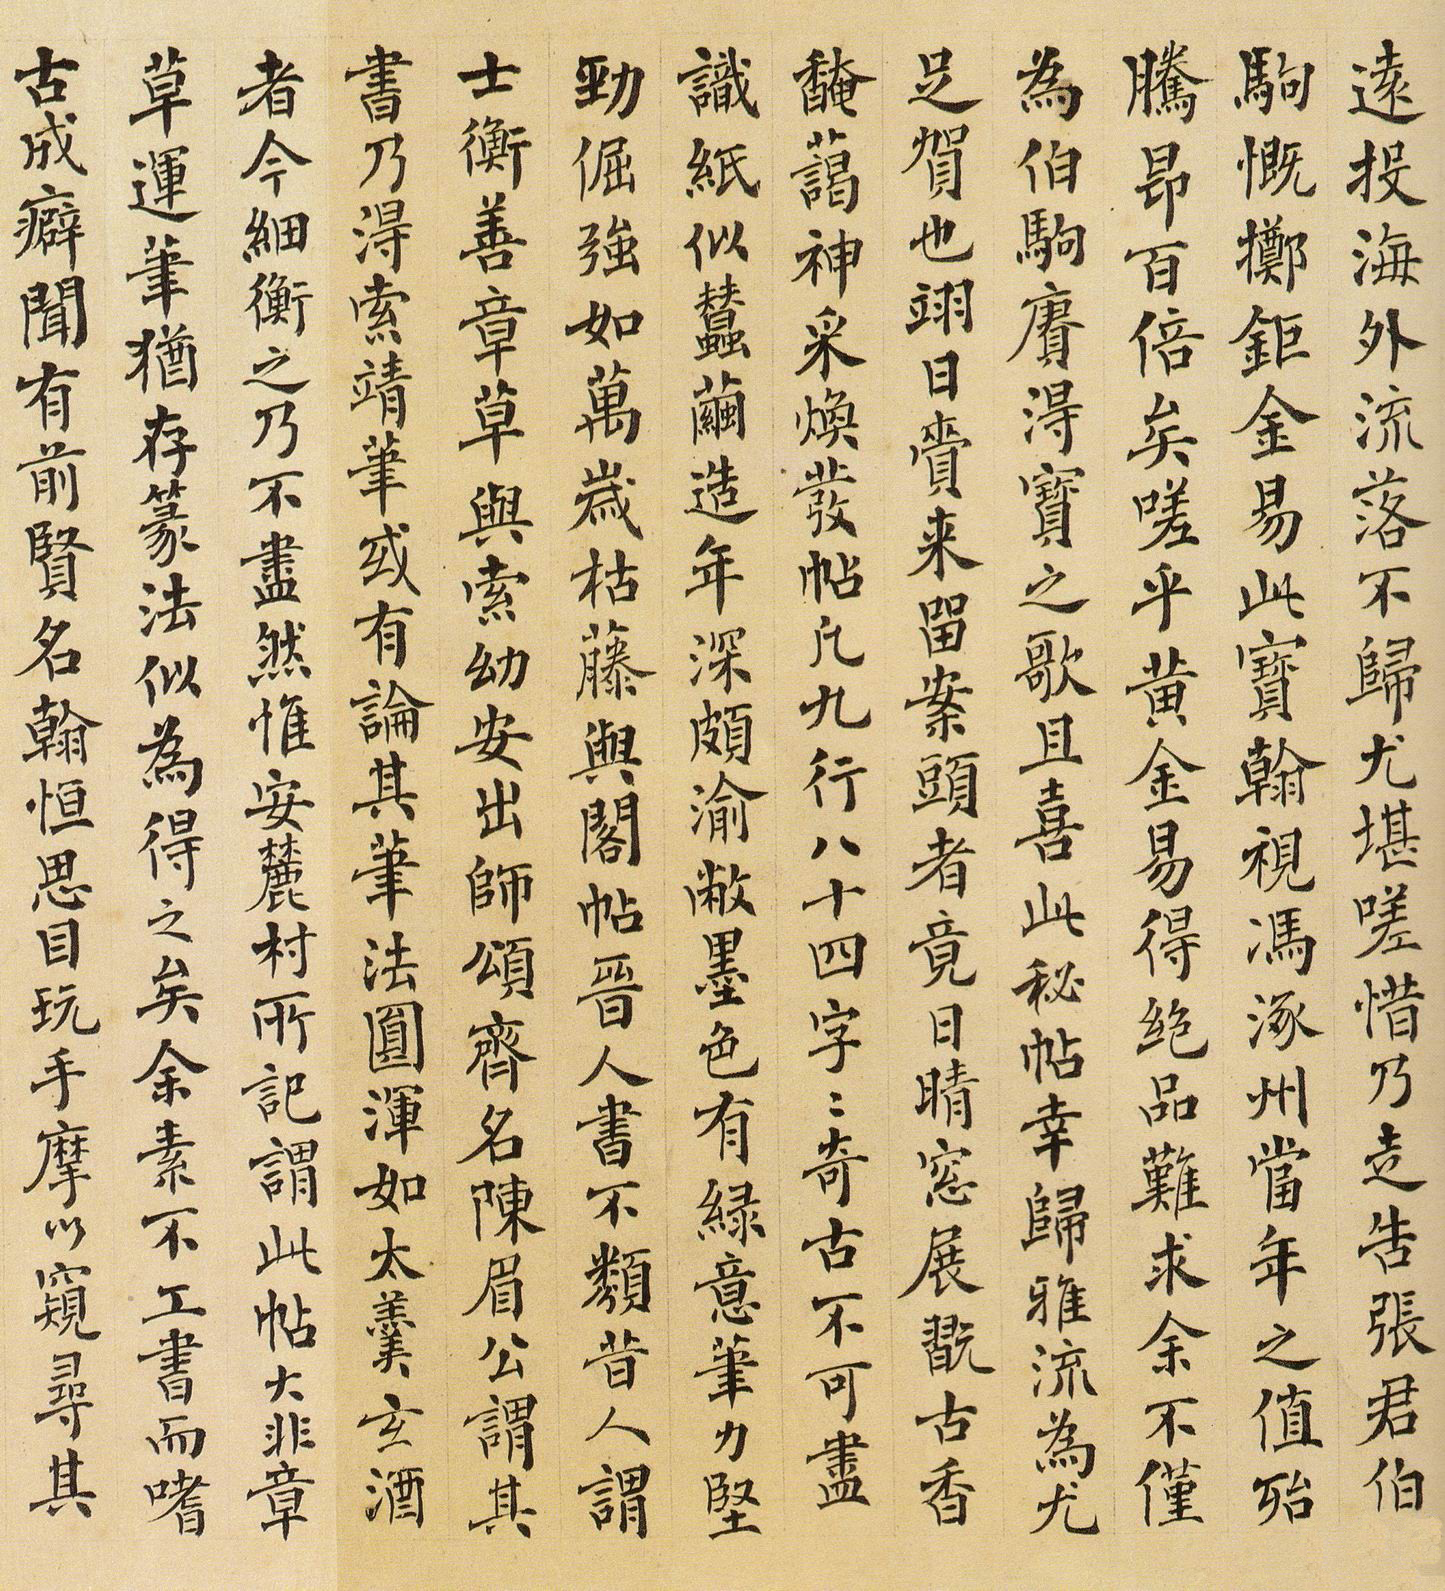 遠投海外流落不歸尤堪嗟惜乃走告張君伯
駒慨擲鉅金易此寶翰視馮涿州當年之值殆
騰昂百倍矣嗟乎黃金易得絕品難求余不僅
為伯駒賡得寶之歌且喜此秘帖幸歸雅流為尤
足賀也翊日賫来留案頭者竟日晴窓展翫古香
馣藹神采煥發帖凡九行八十四字〻奇古不可盡
識紙似蠶繭造年深頗渝敝墨色有綠意筆力堅
勁倔強如萬歲枯藤與閣帖晉人書不類昔人謂
士衡善章草與索幼安出師頌齊名陳眉公謂其
書乃得索靖筆或有論其筆法圓渾如太羹玄酒
者今細衡之乃不盡然惟安麓村所記謂此帖大非章
草運筆猶存篆法似為得之矣余素不工書而嗜
古成癖聞有前賢名翰恒思目玩手摩以窺尋其